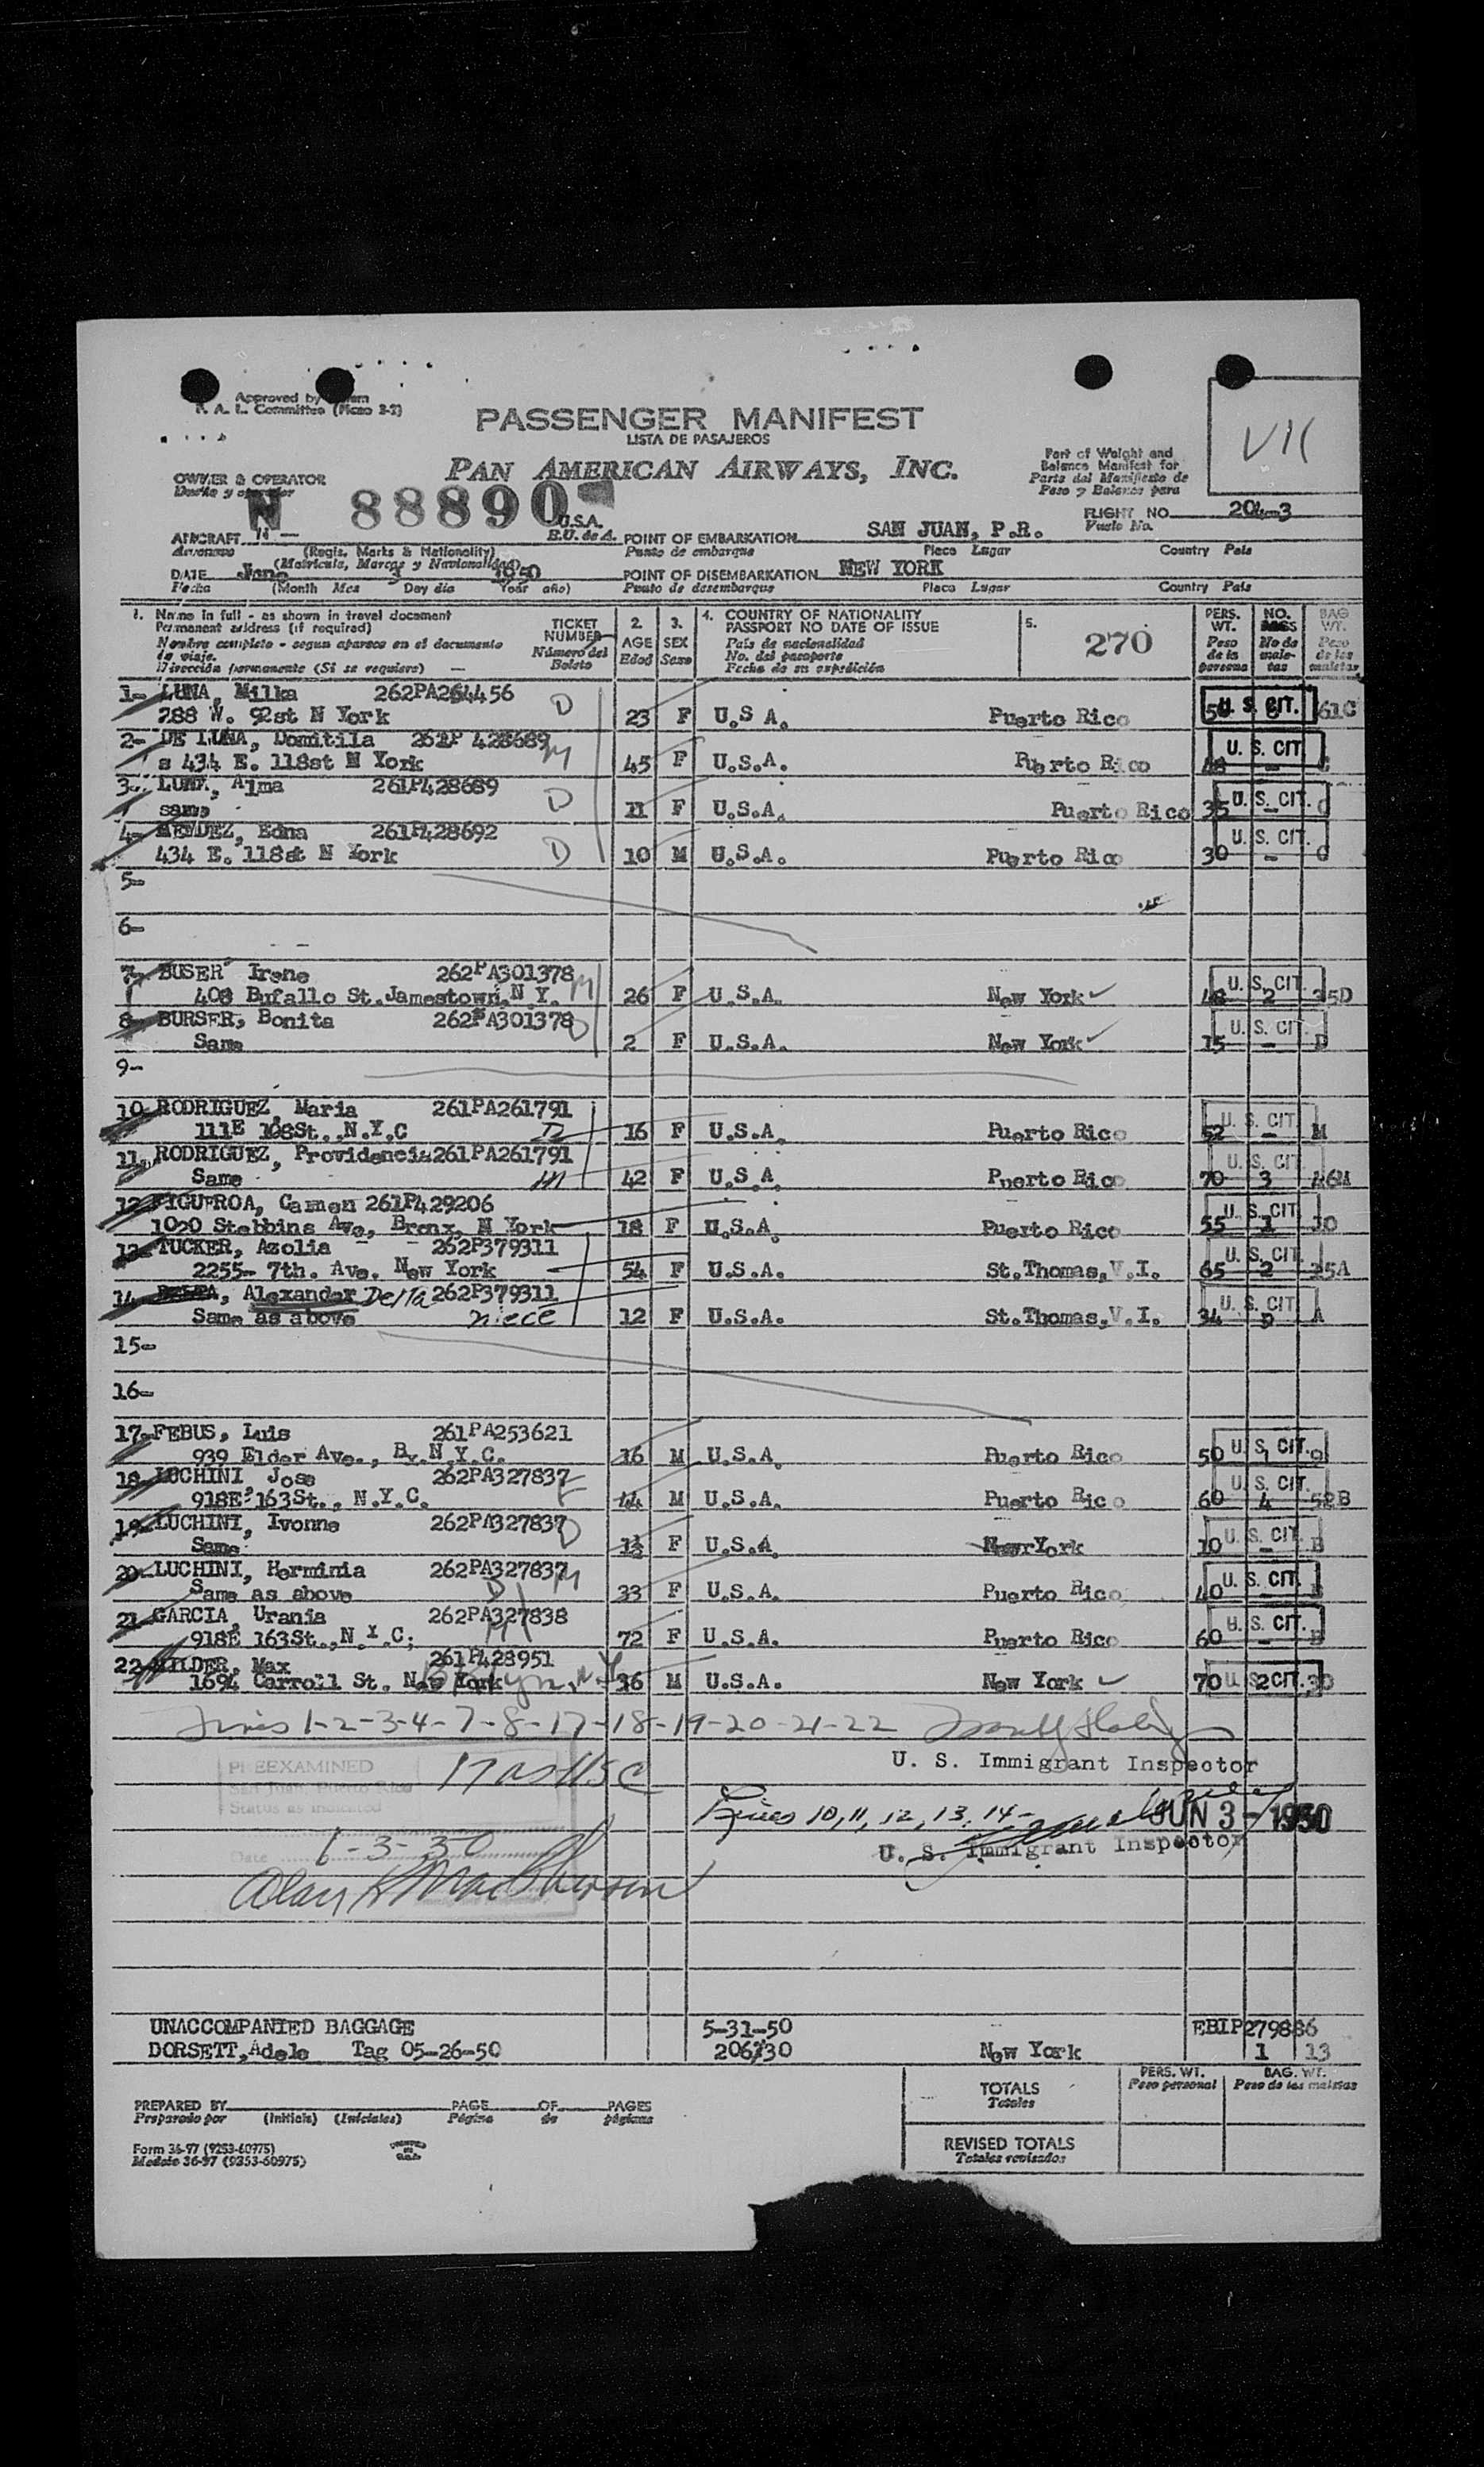 Approved by
P. A. L. Committee (Piezo 3-2)
PASSENGER MANIFEST
LISTA DE PASAJEROS
PAN AMERICAN AIRWAYS, INC.
VII
Part of Weight and
Balance Manifest for
Parte del Manifiesto de
Peso y Balance para
OWNER & OPERATOR
Dueño y operador
N 88890
U.S.A.
E.U. de A.
FLIGHT NO. 204-3
Vuelo No.
AIRCRAFT N -
Aeronave
(Regis. Marks & Nationality)
(Matrícula, Marcas y Nacionalidad)
POINT OF EMBARKATION SAN JUAN, P.R.
Punto de embarque Place Lugar Country País
DATE June 3 1950
Fecha (Month Mes Day día Year año)
POINT OF DISEMBARKATION NEW YORK
Punto de desembarque Place Lugar Country País
1. Name in full - as shown in travel document
Permanent address (if required)
Nombre completo - segun aparece en el documento
de viaje.
Dirección permanente (Si se requiere)
TICKET
NUMBER
Número del
Boleto
2.
AGE
Edad
3.
SEX
Sexo
4. COUNTRY OF NATIONALITY
PASSPORT NO DATE OF ISSUE
País de nacionalidad
No. del pasaporte
Fecha de su expedición
5.
270
PERS.
WT.
Peso
de la
persona
NO.
BAGS
No de
male-
tas
BAG
WT.
Peso
de las
maletas
1- LUNA, Milka 262PA264456 D
288 W. 92st N York 23 F U.S A. Puerto Rico U. S. CIT. 61C
2- DE LUNA, Domitila 261P 428689 M
s 434 E. 118st N York 45 F U.S.A. Puerto Rico 48 U. S. CIT. - C
3- LUNA, Alma 261P428689 D
same 11 F U.S.A. Puerto Rico 35 U. S. CIT. - C
4- MENDEZ, Edna 261P428692 D
434 E. 118st N York 10 M U.S.A. Puerto Rico 30 U. S. CIT. - C
5-
6-
7- BUSER Irene 262PA301378 M
408 Bufallo St. Jamestown, N.Y. 26 F U.S.A. New York 48 U. S. CIT. 2 35D
8- BURSER, Bonita 262PA301378 D
Same 2 F U.S.A. New York 15 U. S. CIT. - D
9-
10- RODRIGUEZ, Maria 261PA261791
111E 108St., N.Y.C D 16 F U.S.A. Puerto Rico 52 U. S. CIT. - M
11. RODRIGUEZ, Providencia 261PA261791
Same M 42 F U.S.A. Puerto Rico 70 U. S. CIT. 3 46M
12 FIGUEROA, Camen 261P429206
1020 Stebbins Ave, Bronx, N York 18 F U.S.A. Puerto Rico 55 U. S. CIT. 1 30
13- TUCKER, Azolia 262P379311
2255- 7th. Ave. New York 54 F U.S.A. St.Thomas, V.I. 65 U. S. CIT. 2 35A
14 Alexander Delta 262P379311
Same as above niece 12 F U.S.A. St.Thomas, V.I. 34 U. S. CIT. A
15-
16-
17- FEBUS, Luis 261PA253621
939 Elder Ave., Bx. N.Y.C. 16 M U.S.A. Puerto Rico 50 U. S. CIT. 1 9
18- LUCHINI Jose 262PA327837 F
918E 163St., N.Y.C. 44 M U.S.A. Puerto Rico 60 U. S. CIT. 4 52B
19- LUCHINI, Ivonne 262PA327837 D
Same 13 F U.S.A. New York 10 U. S. CIT. - B
20- LUCHINI, Herminia 262PA327837 M
Same as above 33 F U.S.A. Puerto Rico 40 U. S. CIT. - B
21 GARCIA, Urania 262PA327838
918E 163St., N.Y.C; 72 F U.S.A. Puerto Rico 60 U. S. CIT. - B
22 WILDER, Max 261P428951
1694 Carroll St. New York Bklyn. N.Y. 36 M U.S.A. New York 70 U S CIT. 2
Lines 1-2-3-4-7-8-17-18-19-20-21-22
U. S. Immigrant Inspector
PREEXAMINED
San Juan, Puerto Rico
Status as indicated
17 as USC
Lines 10, 11, 12, 13, 14-
JUN 3 - 1950
U. S. Immigrant Inspector
Date 6-3-50
UNACCOMPANIED BAGGAGE 5-31-50 EBIP279886
DORSETT, Adele Tag 05-26-50 206/30 New York 1 13
TOTALS
Totales
PERS. WT.
Peso personal
BAG. WT.
Peso de las maletas
PREPARED BY PAGE OF PAGES
Preparado por (Initials) (Iniciales) Página de páginas
REVISED TOTALS
Totales revisados
Form 36-97 (9253-60975)
Modelo 36-97 (9253-60975)